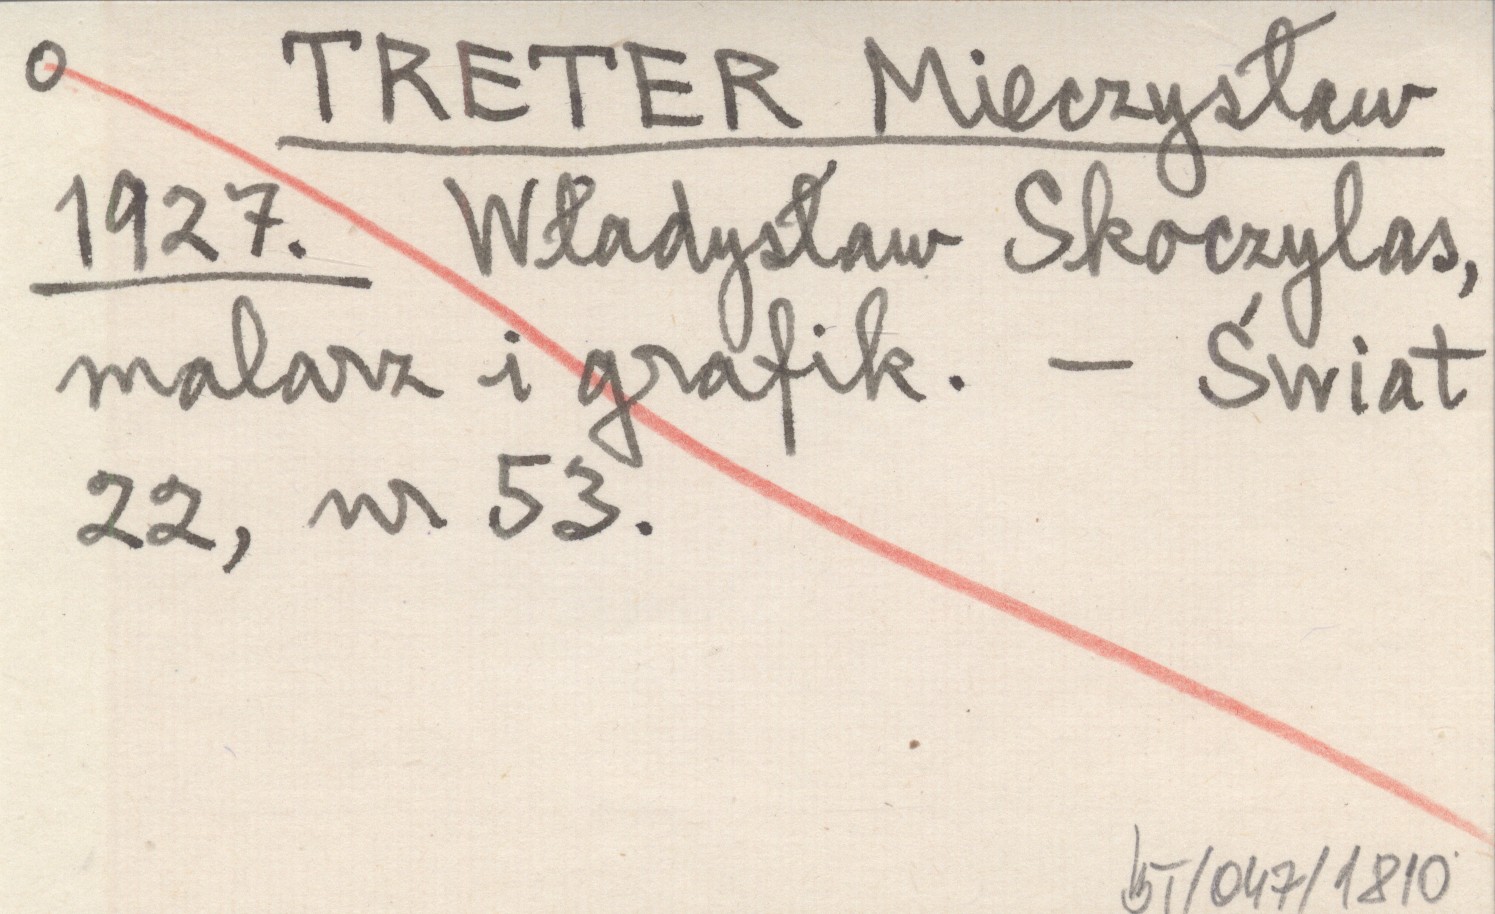 o TRETER Mieczysław
1927. Władysław Skoczylas,
malarz i grafik. — Świat
22, nr 53.
/047/1810